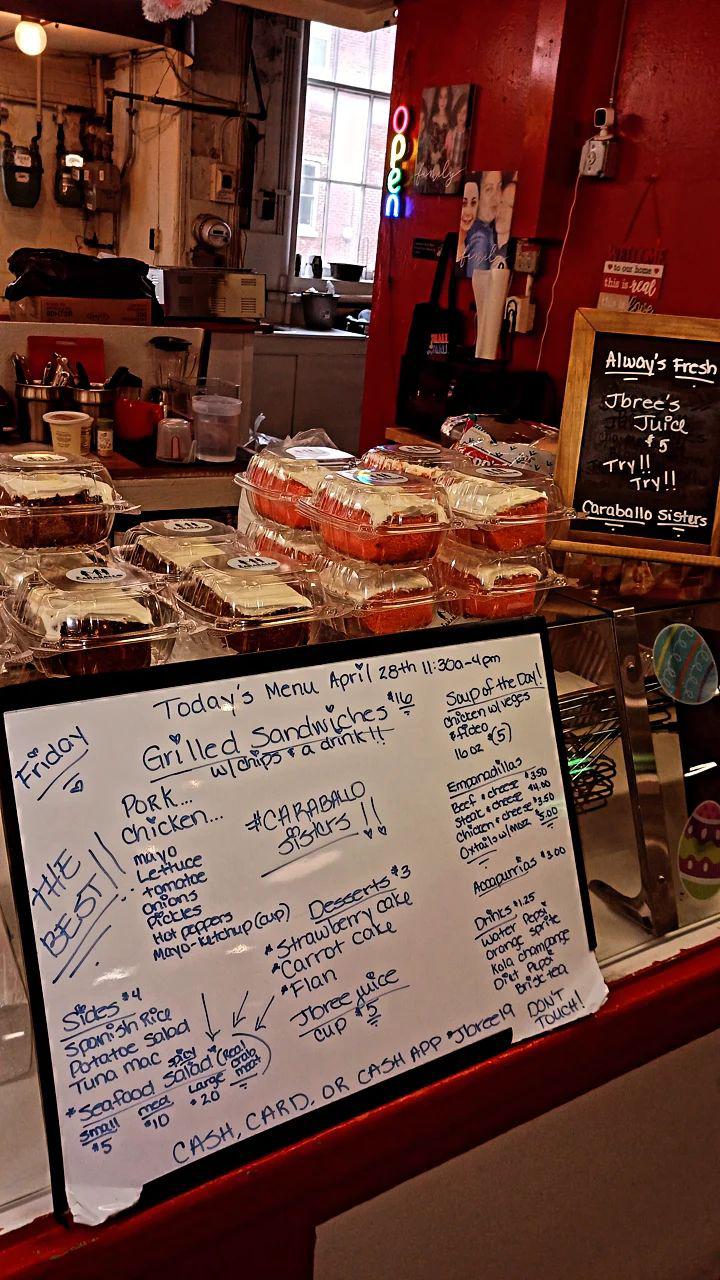 open
family
family
to our home
this is real
Alway's Fresh
Jbree's
Juice
$5
Try!!
Try!!
Caraballo Sisters
Today's Menu April 28th 11:30a-4pm
Friday
Grilled Sandwiches $16
w/chips & a drink!!
Pork...
Chicken...
mayo
Lettuce
tomatoe
onions
Pickles
Hot peppers
Mayo-ketchup(cup)
THE
BEST!!
#CARABALLO
Sisters!!
Desserts $3
*Strawberry cake
*Carrot cake
*Flan
Jbree juice
cup $5
Sides $4
Spanish Rice
Potatoe Salad
Tuna mac
*Seafood spicy Salad (Real crab meat)
small med Large
$5 $10 $20
Soup of the Day!
chicken w/veges
& fideo
16 oz ($5)
Empanadillas
Beef & cheese $3.50
Steak & cheese $4.00
Chicken & cheese $3.50
Oxtails w/moz $5.00
Accapurrias $3.00
Drinks $1.25
Water Pepsi
Orange Sprite
Kola champange
Diet Pepsi
Brist tea
CASH, CARD, OR CASH APP $Jbree19
DON'T
TOUCH!